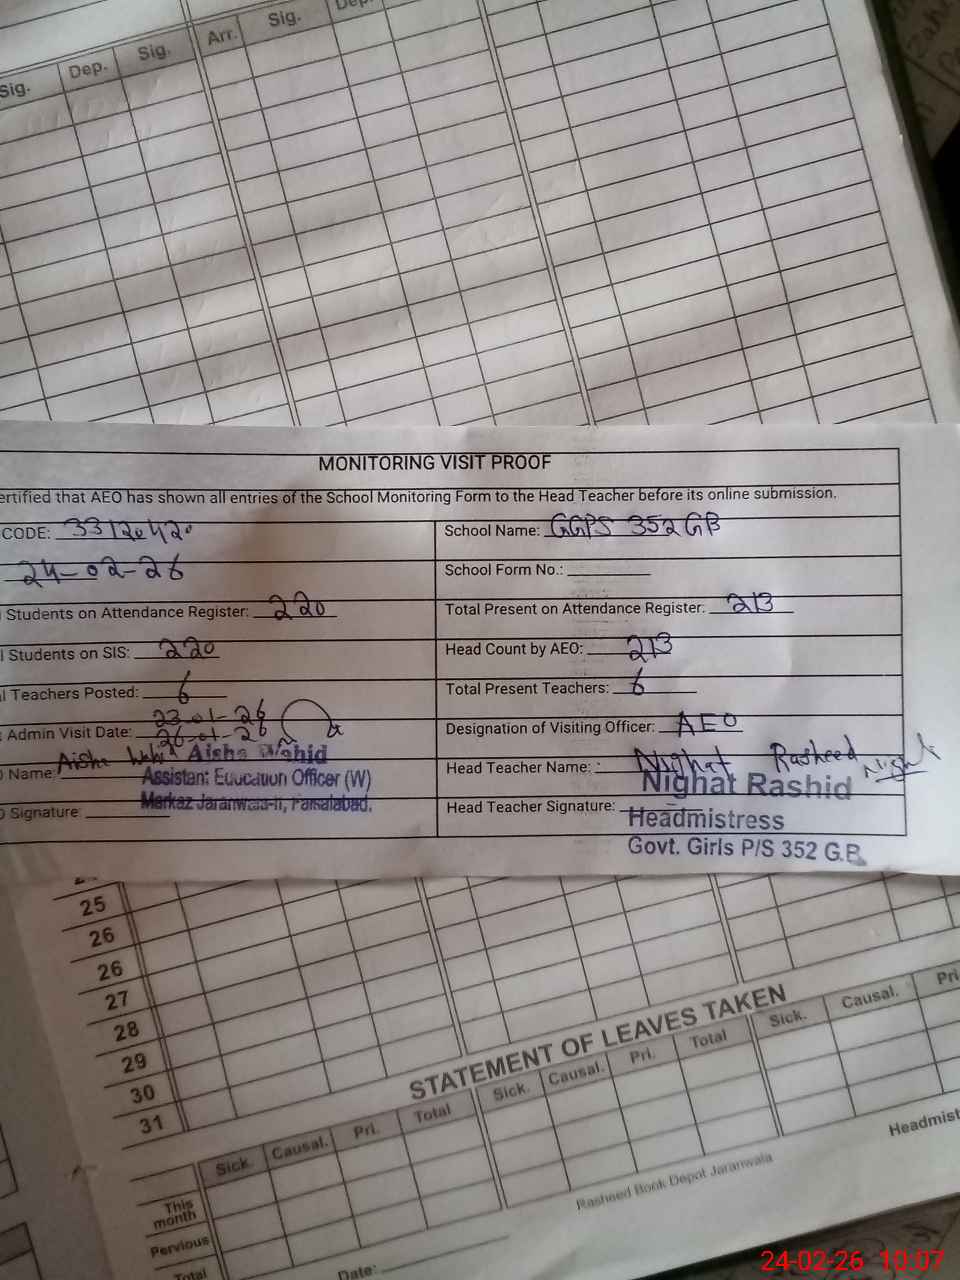 Sig. Dep. Sig. Arr. Sig. Dep.
MONITORING VISIT PROOF
ertified that AEO has shown all entries of the School Monitoring Form to the Head Teacher before its online submission.
CODE: 33120420 School Name: GGPS 352 GB
24-02-26 School Form No.:
Students on Attendance Register: 220 Total Present on Attendance Register: 213
l Students on SIS: 220 Head Count by AEO: 213
l Teachers Posted: 6 Total Present Teachers: 6
23-01-26
Admin Visit Date: 26-01-26 Designation of Visiting Officer: AEO
Name: Aisha Wahid Aisha Wahid Head Teacher Name: Nighat Rasheed
Assistant Education Officer (W) Nighat Rashid
Markaz Jaranwala-II, Faisalabad.
Signature: Head Teacher Signature: Headmistress
Govt. Girls P/S 352 G.B.
25
26
26
27
28
29
30
31
STATEMENT OF LEAVES TAKEN
Sick. Causal. Pri. Total Sick. Causal. Pri. Total Sick. Causal. Pri
This month
Pervious
Total
Headmist
Rasheed Book Depot Jaranwala
Date:
24-02-26 10:07